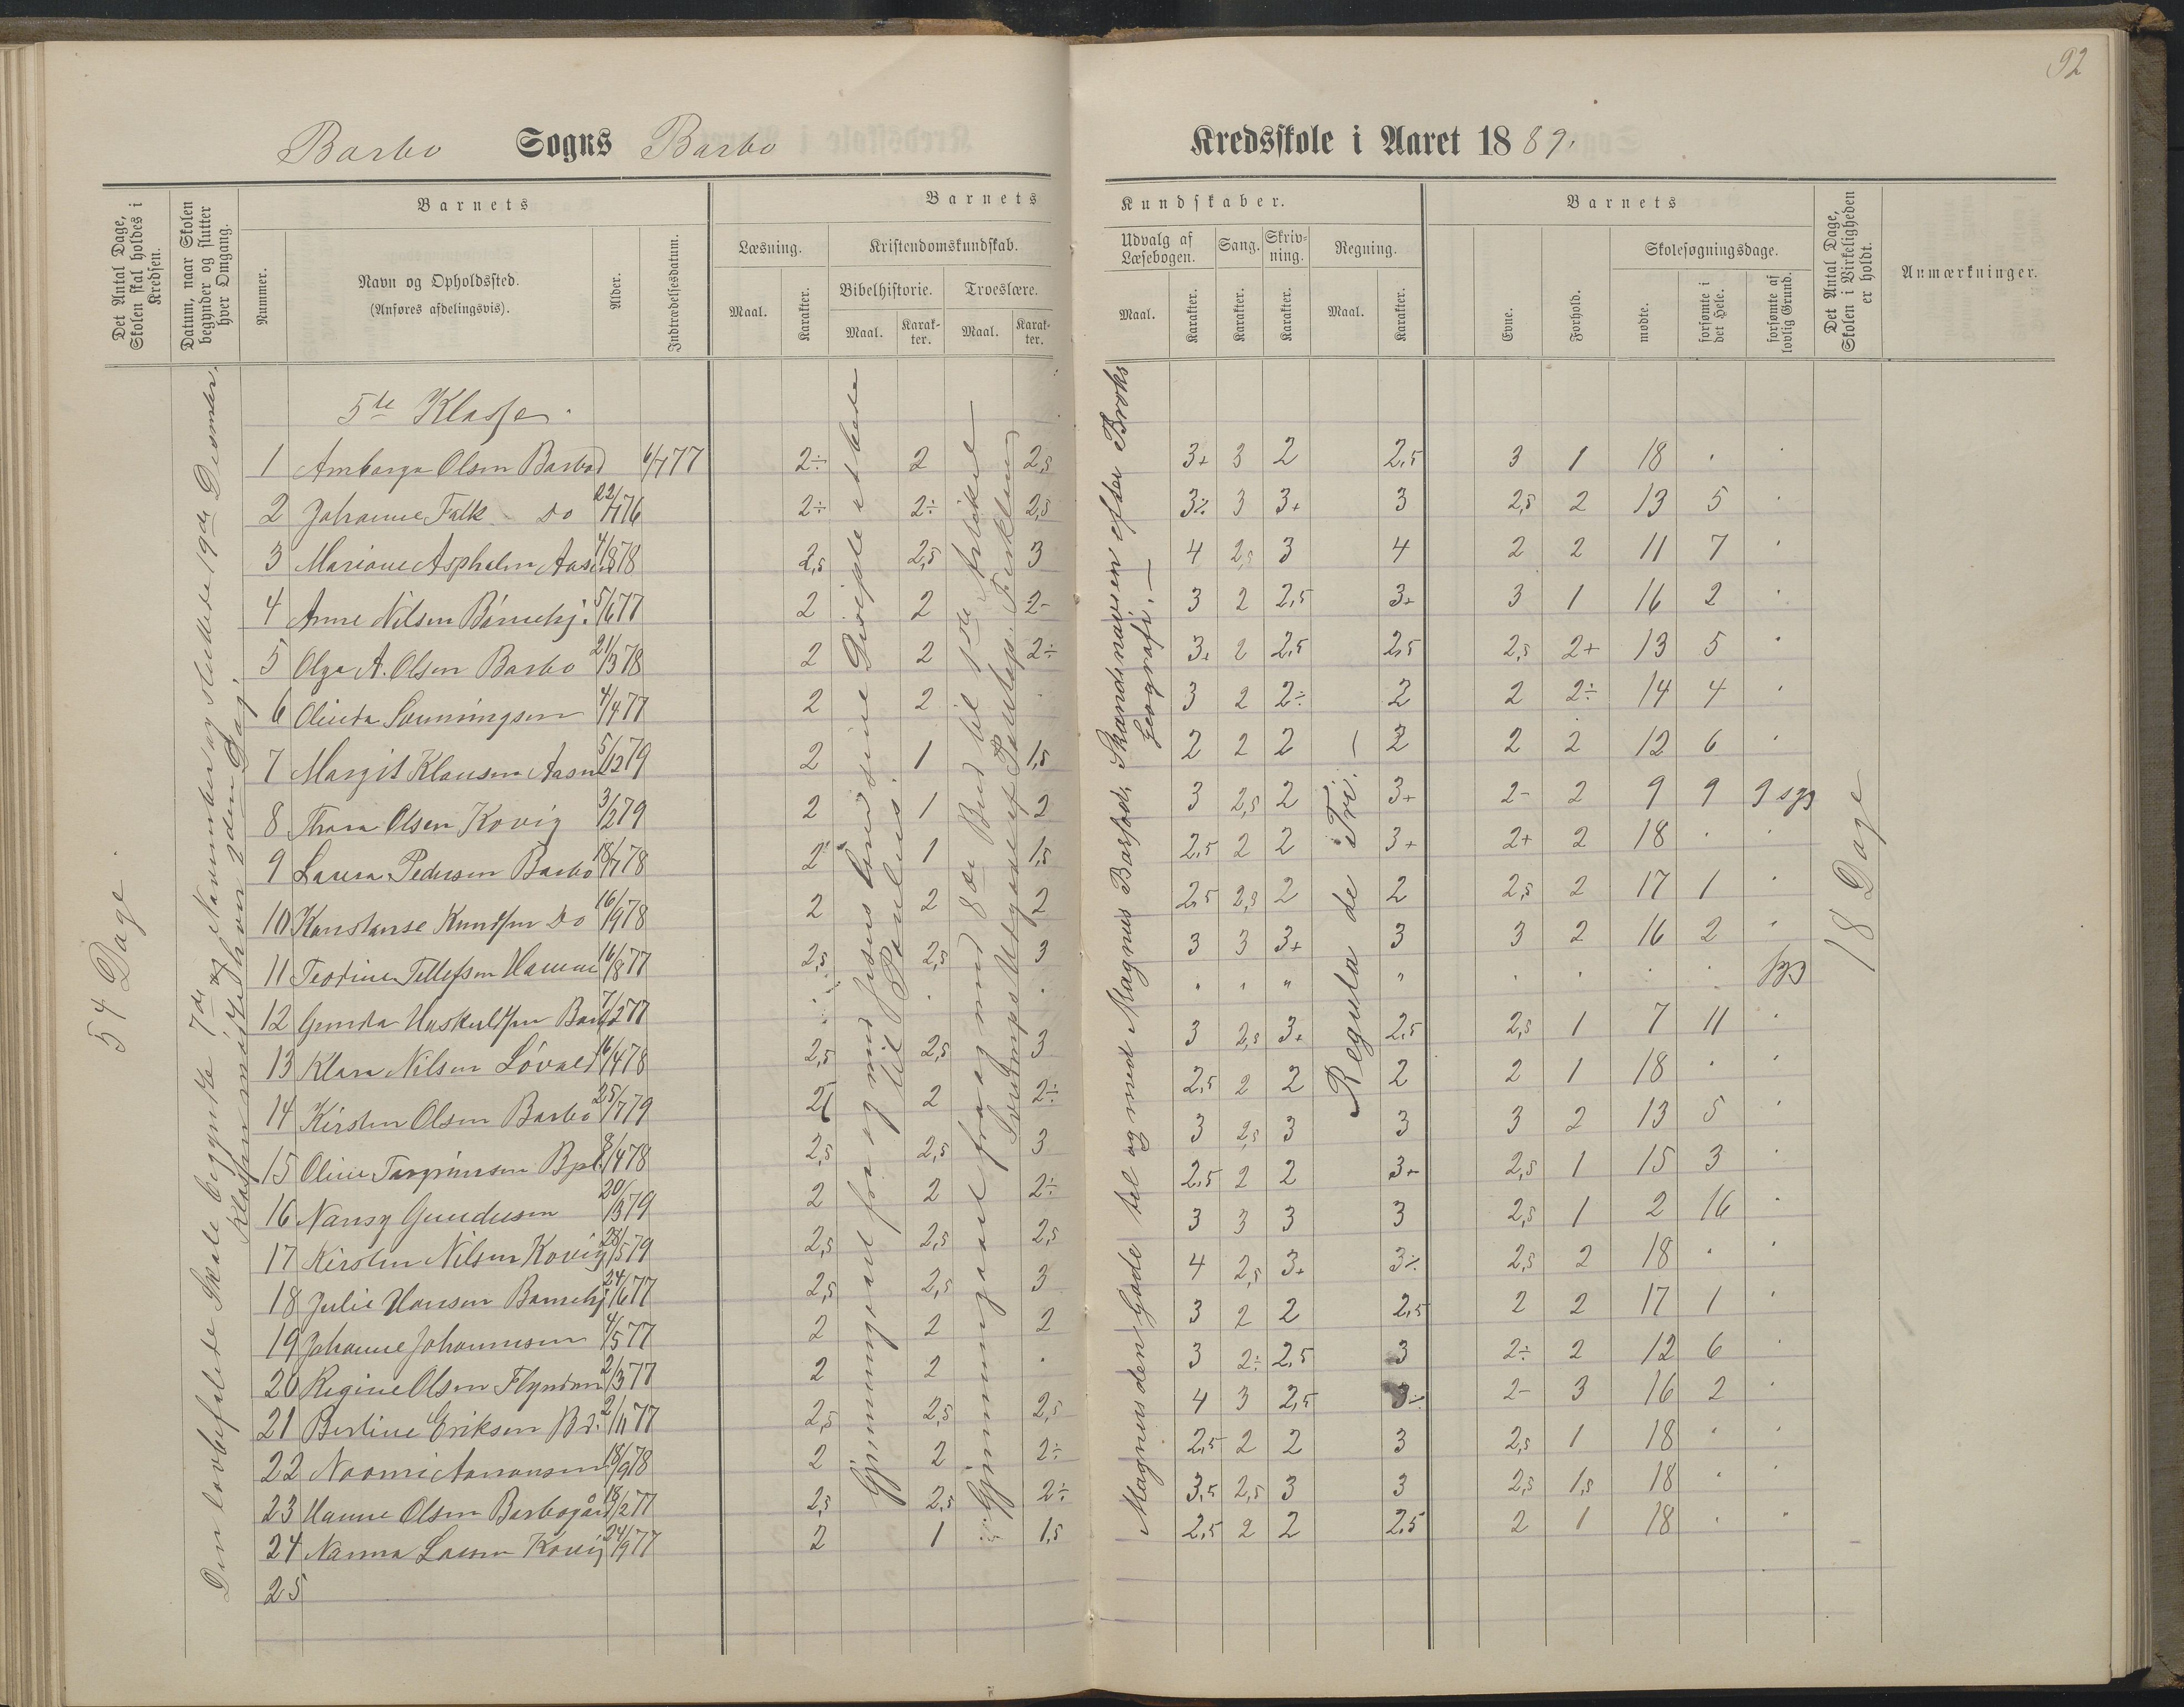 92
Barbo Sogns Barbo Kredsskole i Aaret 1889.
Det Antal Dage, Skolen skal holdes i Kredsen.
Datum, naar Skolen begynder og slutter hver Omgang.
Barnets
Nummer.
Navn og Opholdssted.
(Anføres afdelingsvis).
Alder.
Indtrædelsesdatum.
Barnets Kundskaber.
Læsning.
Maal.
Karakter.
Kristendomskundskab.
Bibelhistorie.
Maal.
Karakter.
Troeslære.
Maal.
Karakter.
Udvalg af Læsebogen.
Maal.
Karakter.
Sang.
Karakter.
Skrivning.
Karakter.
Regning.
Maal.
Karakter.
Barnets
Evne.
Forhold.
Skolesøgningsdage.
mødte.
forsømte i det Hele.
forsømte af lovlig Grund.
Det Antal Dage, Skolen i Virkeligheden er holdt.
Anmærkninger.
54 Dage.
Den lovbefalede Skole begyndte 7de November og sluttede 19de December.
Klassen mødte hver 2den Dag.
Gjennemgaaet fra og med Jesus bærer sine Disciple at bede til Paulus.
Gjennemgaaet fra og med 8de Bud til 1ste Artikel
Sverdrups Udgave af Pontop. Forklaring
Magnus den Gode til og med Magnus Barfod, Skandinavien efter Broks Geografi. —
Regula de Tri. —
18 Dage
5te Klasse.
1 Amborga Olsen Barbo 6/7 77 2÷ 2 2,5 3+ 3 2 2,5 3 1 18 . .
2 Johanne Falk Do 22/7 76 2÷ 2÷ 2,5 3÷ 3 3+ 3 2,5 2 13 5 .
3 Marione Aspholm 4/8 78 2,5 2,5 3 4 2,5 3 4 2 2 11 7 .
4 Anne Nilsen 5/6 77 2 2 2- 3 2 2,5 3+ 3 1 16 2 .
5 Olga A. Olsen Barbo 21/3 78 2 2 2÷ 3+ 2 2,5 2,5 2,5 2+ 13 5 .
6 Olinda Sønningsen 4/4 77 2 2 . 3 2 2÷ 2 2 2÷ 14 4 .
7 Margit Klausen 5/12 79 2 1 1,5 2 2 2 2 2 2 12 6 .
8 Thora Olsen Kovig 3/2 79 2 1 2 3 2,5 2 3+ 2- 2 9 9 9 syg
9 Laura Pedersen Barbo 18/7 78 2 1 1,5 2,5 2 2 3+ 2+ 2 18 . .
10 Konstanse Knudsen Do 16/9 78 2 2 2 2,5 2,5 2 2 2,5 2 17 1 .
11 Teodine Tellefsen 16/8 77 2,5 2,5 3 3 3 3+ 3 3 2 16 2 .
12 Gunda 7/2 77 . . . " " " " . . . . syg
13 Klara Nilsen Løvaas 16/4 78 2,5 2,5 3 3 2,5 3+ 2,5 2,5 1 7 11 .
14 Kirsten Olsen Barbo 25/7 79 2 2 2÷ 2,5 2 2 2 2 1 18 . .
15 Oline Torgrimsen 8/4 78 2,5 2,5 3 3 2,5 3 3 3 2 13 5 .
16 Nansy Gundersen 20/3 79 2 2 2÷ 2,5 2 2 3+ 2,5 1 15 3 .
17 Kirsten Nilsen Kovig 28/5 79 2,5 2,5 2,5 3 3 3 3 2,5 1 2 16 .
18 Julie Hansen 24/6 77 2,5 2,5 3 4 2,5 3+ 3÷ 2,5 2 18 . .
19 Johanne Johannesen 4/5 77 2 2 2 3 2 2 2,5 2 2 17 1 .
20 Regine Olsen 2/3 77 2 2 . 3 2÷ 2,5 3 2÷ 2 12 6 .
21 Bertine Eriksen 2/11 77 2,5 2,5 2,5 4 3 2,5 3÷ 2- 3 16 2 .
22 Noomi Aanonsen 18/9 78 2 2 2÷ 2,5 2 2 3 2,5 1 18 . .
23 Hanne Olsen Barbogård 18/2 77 2,5 2,5 2÷ 3,5 2,5 3 3 2,5 1,5 18 . .
24 Nanna Larsen Kovig 24/9 77 2 1 1,5 2,5 2 2 2,5 2 1 18 . .
25